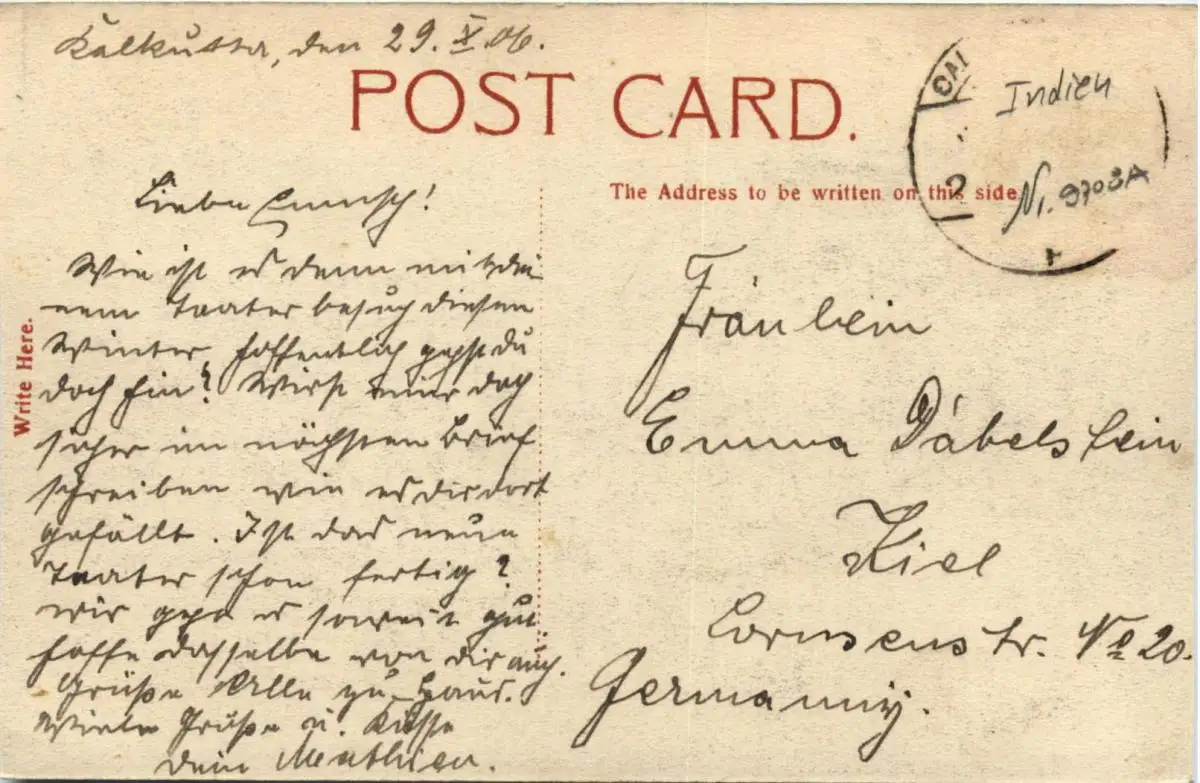 Kalkutta, den 29. X. 06.
POST CARD.
CAL
Indien
2
Nr. 9703A
The Address to be written on this side
Write Here.
Liebe
Wie ist es denn mit dei
nem Teater besuch diesen
Winter, hoffentlich gehst du
doch hin? Wirst mir doch
sicher im nächsten Brief
schreiben wie es dir dort
gefällt. Ist das neue
Teater schon fertig?
Mir geht es soweit gut
hoffe dasselbe von dir auch.
Grüße Alle zu Haus.
Viele Grüße u. Küsse
dein
Fräulein
Emma Däbelstein
Kiel
Cornsenstr. No 20.
Germanny.